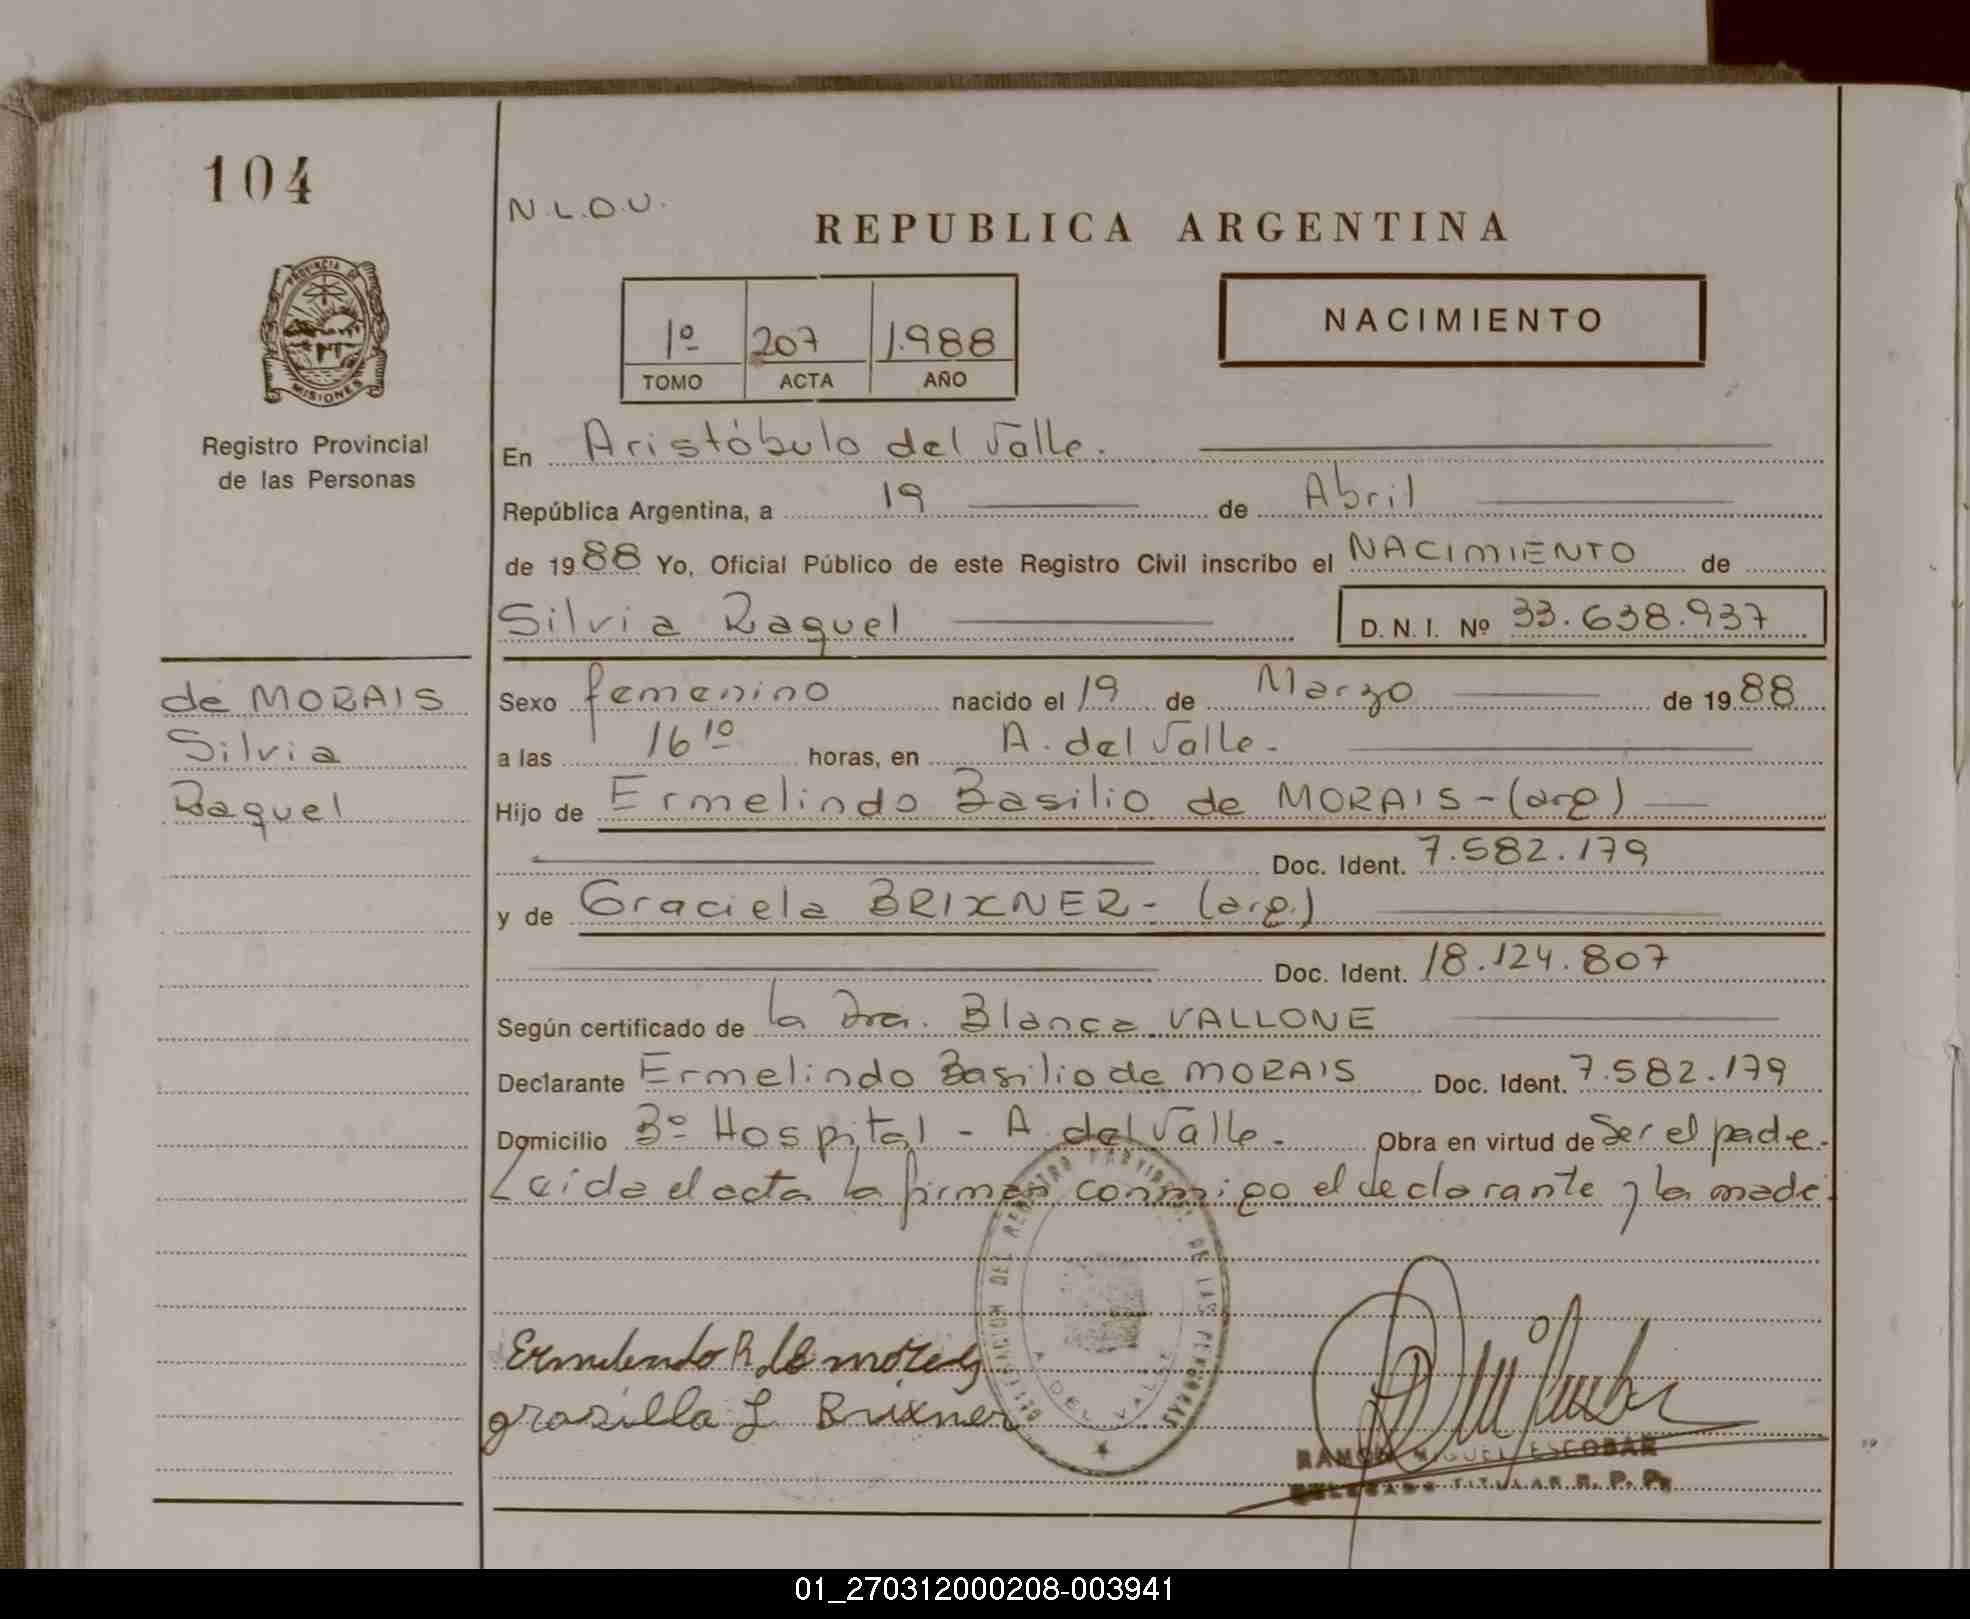 104
N.L.O.U.
REPUBLICA ARGENTINA
PROVINCIA DE
MISIONES
1º 207 1.988
TOMO ACTA AÑO
NACIMIENTO
Registro Provincial
de las Personas
En Aristóbulo del Valle.
República Argentina, a 19 de Abril
de 1988 Yo, Oficial Público de este Registro Civil inscribo el NACIMIENTO de
Silvia Raquel D. N. I. Nº 33.638.937
de MORAIS
Silvia
Raquel
Sexo femenino nacido el 19 de Marzo de 1988
a las 16 10 horas, en A. del Valle.
Hijo de Ermelindo Basilio de MORAIS - (arg)
Doc. Ident. 7.582.179
y de Graciela BRIXNER - (arg.)
Doc. Ident. 18.124.807
Según certificado de la Dra. Blanca VALLONE
Declarante Ermelindo Basilio de MORAIS Doc. Ident. 7.582.179
Domicilio Bº Hospital - A. del Valle. Obra en virtud de ser el padre.
Leida el acta la firman conmigo el declarante y la madre
DELEGACION DEL REGISTRO PROVINCIAL DE LAS PERSONAS
A. DEL VALLE
grasilla L Brixner
RAMON MIGUEL ESCOBAR
DELEGADO TITULAR R. P. P.
01_270312000208-003941